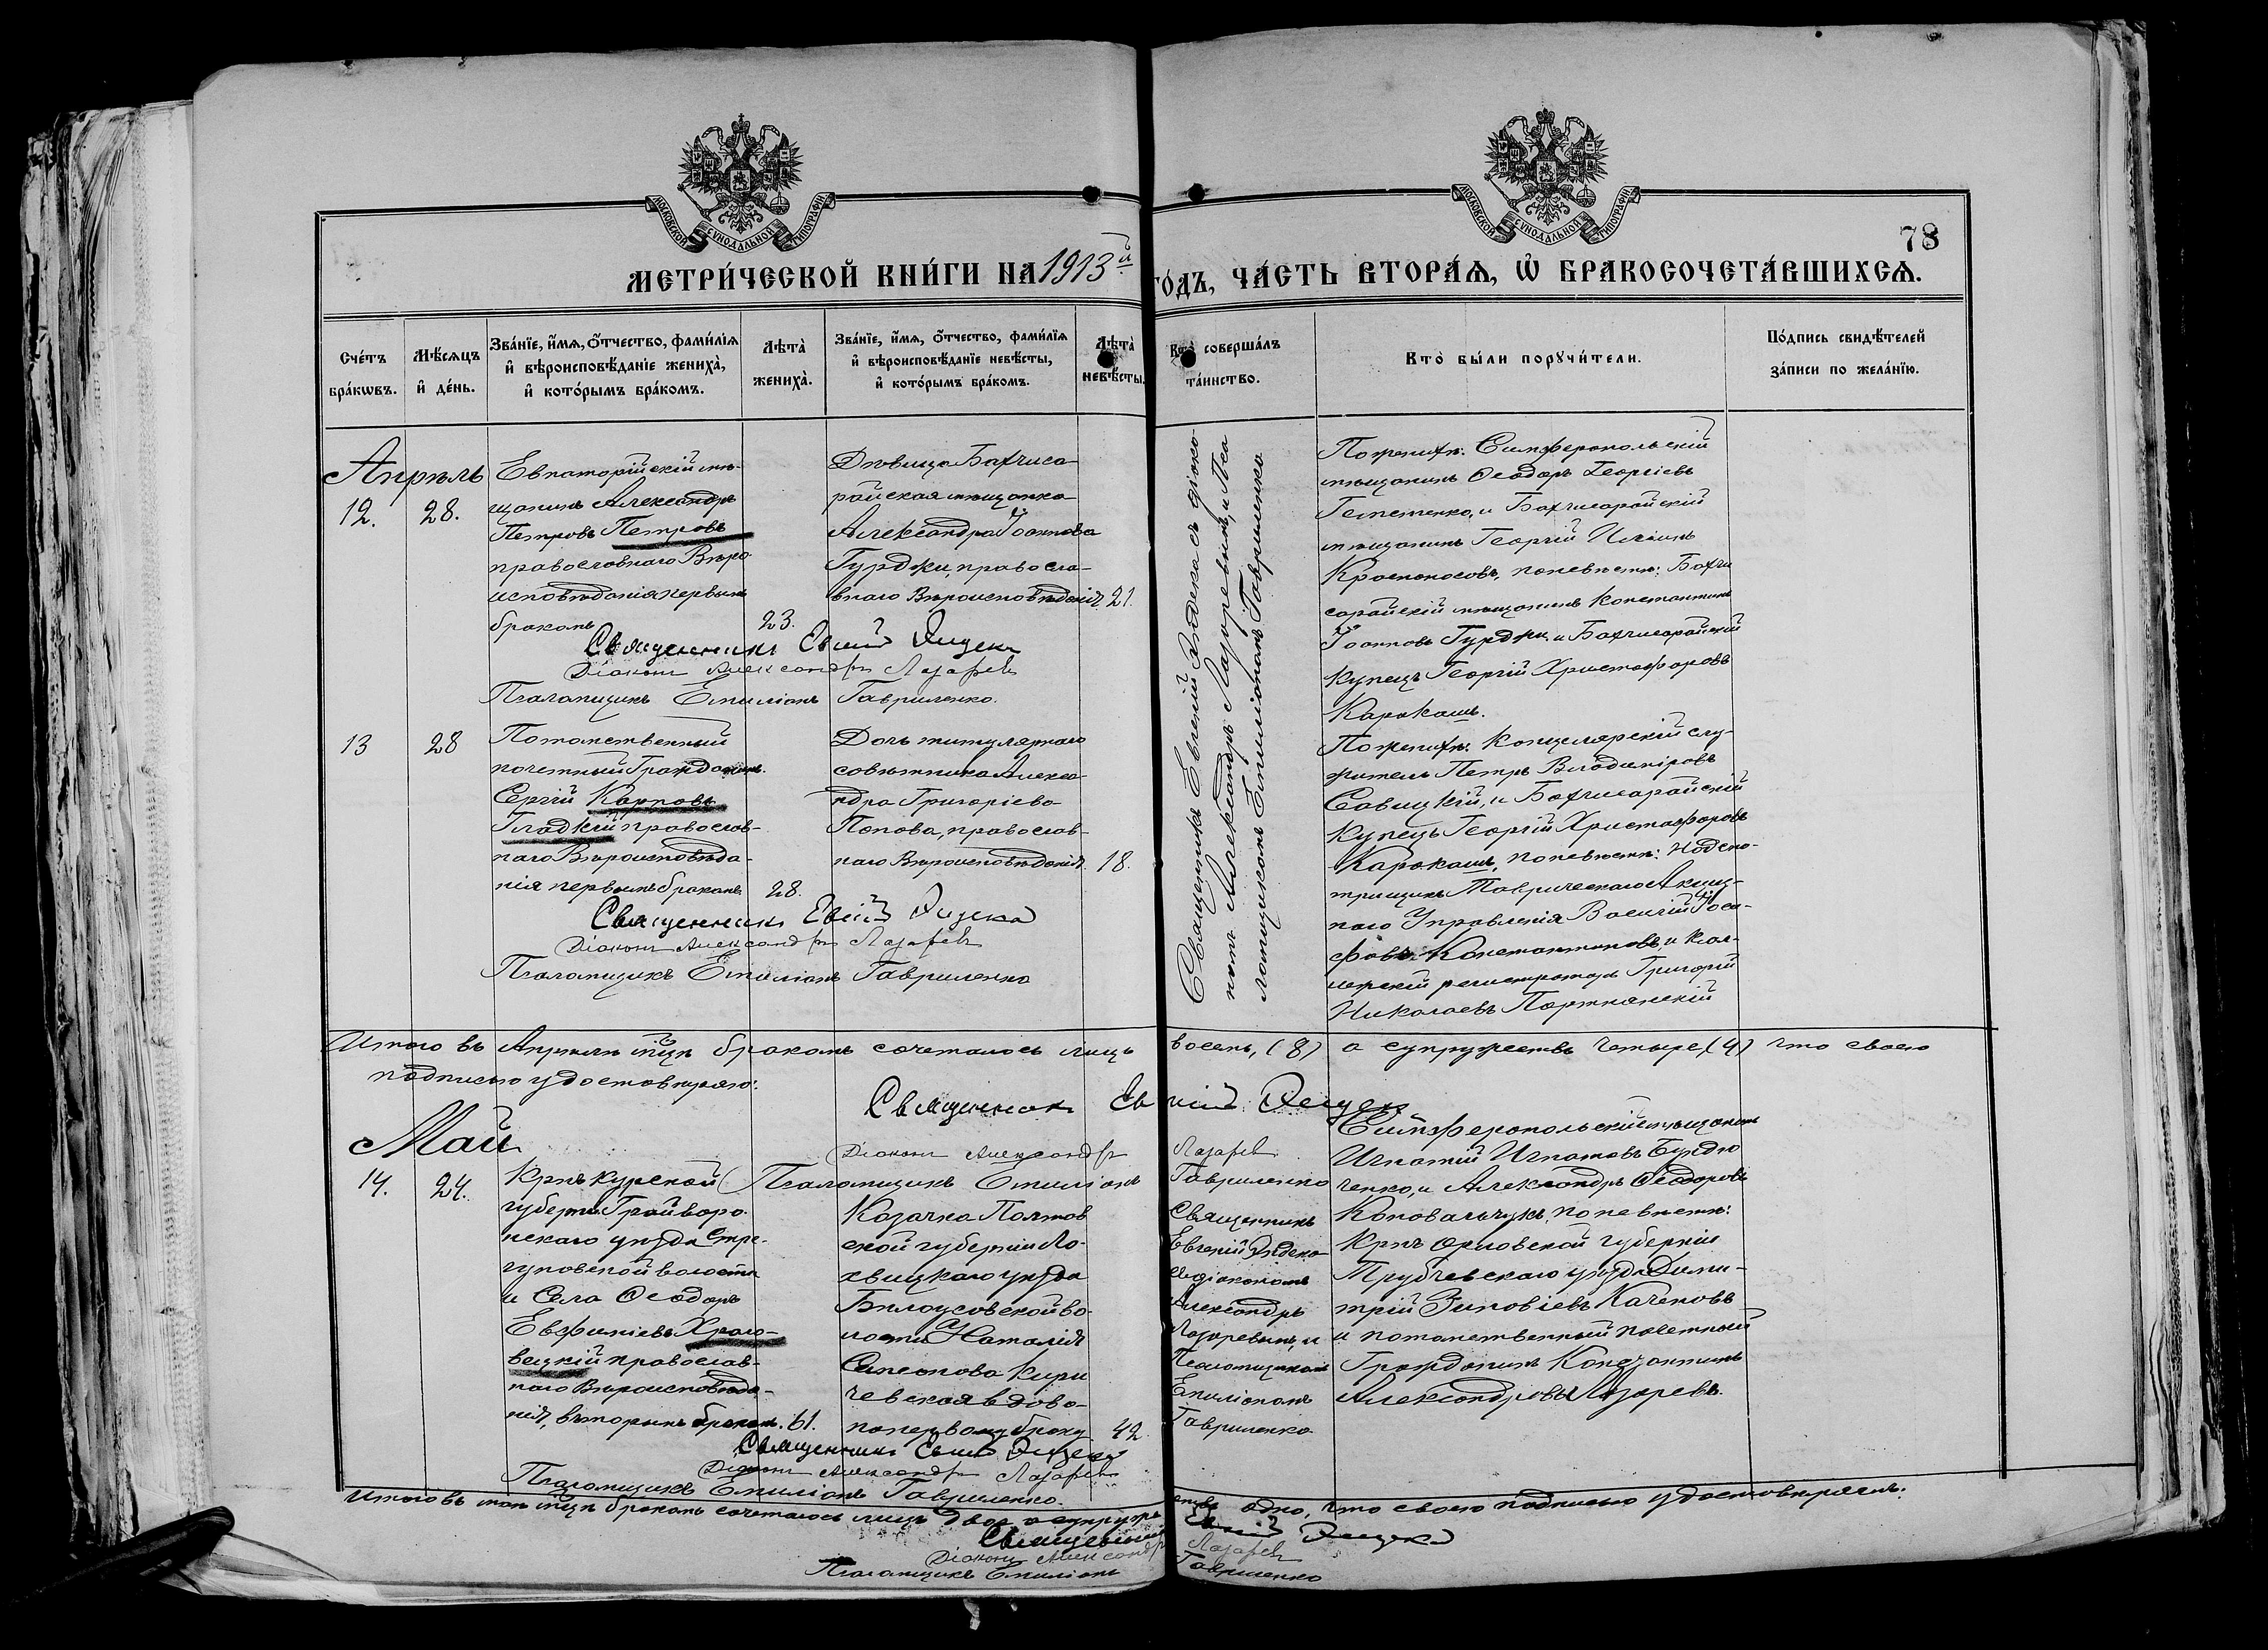 МОСКОВСКОЙ СѴНОДАЛЬНОЙ ТИПОГРАФІИ
МОСКОВСКОЙ СѴНОДАЛЬНОЙ ТИПОГРАФІИ
78
МЕТРИ́ЧЕСКОЙ КНИ́ГИ НА 1913й ГО́ДЪ, ЧА́СТЬ ВТОРА́Ѧ, Ѡ҆ БРАКОСОЧЕТА́ВШИХСѦ.
Сче́тъ бра́кѡвъ.
Мѣ́сѧцъ и҆ де́нь.
Зва́нїе, и҆́мѧ, ѻ҆́тчество, фами́лїѧ
и҆ вѣроисповѣ́данїе жениха̀,
и҆ кото́рымъ бра́комъ.
Лѣта̀ жениха̀.
Зва́нїе, и҆́мѧ, ѻ҆́тчество, фами́лїѧ
и҆ вѣроисповѣ́данїе невѣ́сты,
и҆ кото́рымъ бра́комъ.
Лѣта̀ невѣ́сты.
Кто̀ соверша́лъ та́инство.
Кто̀ бы́ли порꙋчи́тели.
По́дпись свидѣ́телей
за́писи по жела́нїю.
Апрѣль
12. 28.
Евпаторійскій мѣ-
щанинъ Александръ
Петровъ Петровъ
православнаго Вѣро
исповѣданія первымъ
бракомъ
23.
Дѣвица Бахчиса-
райская мѣщанка
Александра Іоаннова
Гурджи, правосла-
внаго Вѣроисповѣданія
21.
Священникъ Евгеній с діако-
номъ Александръ Лазаревымъ, и Пса
ломщикомъ Емиліаномъ Гавриленко
По женихѣ: Симферопольскій
мѣщанинъ Ѳеодоръ Георгіевъ
и Бахчисарайскій
мѣщанинъ Георгій Ильинъ
Красноносовъ, по невѣстѣ: Бахчи
сарайскій мѣщанинъ Константинъ
Іоанновъ Гурджи и Бахчисарайскій
купецъ Георгій Христофоровъ
Каракашъ.
Священникъ
Діаконъ Александръ Лазаревъ
Псаломщикъ Емиліанъ Гавриленко.
13 28
Потомственный
почетный Гражданинъ
Сергій Карповъ
Гладкій православ-
наго Вѣроисповѣда-
нія первымъ бракомъ
28.
Дочь титулярнаго
совѣтника Алекса-
ндра Григоріева
Попова, православ-
наго Вѣроисповѣданія
18.
По женихѣ: Канцелярскій слу-
житель Петръ Владиміровъ
Савицкій, и Бахчисарайскій
купецъ Георгій Христофоровъ
Каракашъ, по невѣстѣ: Надсмо-
трщикъ Таврическаго Акциз-
наго Управленія Василій Іоси-
фовъ Константиновъ, и Кол-
лежскій регистраторъ Григорій
Николаевъ Портнянскій
Священникъ
Діаконъ Александръ Лазаревъ
Псаломщикъ Емиліанъ Гавриленко
Итого въ Апрѣлѣ мцѣ бракомъ сочеталось лицъ восемь, (8) а супружествъ четыре, (4) что своею
подписью удостовѣряю:
Священникъ
Діаконъ Александръ Лазаревъ
Псаломщикъ Емиліанъ Гавриленко
Май
14. 24.
Крнъ Курской
губерніи Грайворо-
нскаго уѣзда Стре-
гуновской волости
и Села Ѳеодоръ
Евфиміевъ Храпо-
вецкій православ-
наго Вѣроисповѣда-
нія, вторымъ бракомъ.
61.
Казачка Полтав
ской губерніи Ло-
хвицкаго уѣзда
Бѣлоусовской во-
лости Наталія
Симеонова Кири
чевская вдова
по первому браку
42
Священникъ
Евгеній
съ діакономъ
Александръ
Лазаревымъ, и
Псаломщикомъ
Емиліаномъ
Гавриленко
Симферопольскій мѣщанинъ
Игнатій Игнатовъ Бундю
ченко, и Александръ Ѳеодоровъ
Коновальчукъ, по невѣстѣ:
Крнъ Орловской губерніи
Трубчевскаго уѣзда Дими-
трій Зиновіевъ Каченовъ
и потомственный почетный
Гражданинъ Константинъ
Александровъ Лазаревъ.
Священникъ
Діаконъ Александръ Лазаревъ
Псаломщикъ Емиліанъ Гавриленко.
Итого въ маѣ мцѣ бракомъ сочеталось лицъ двое а супружествъ одно, что своею подписью удостовѣряемъ:
Священникъ
Діаконъ Александръ Лазаревъ
Псаломщикъ Емиліанъ Гавриленко